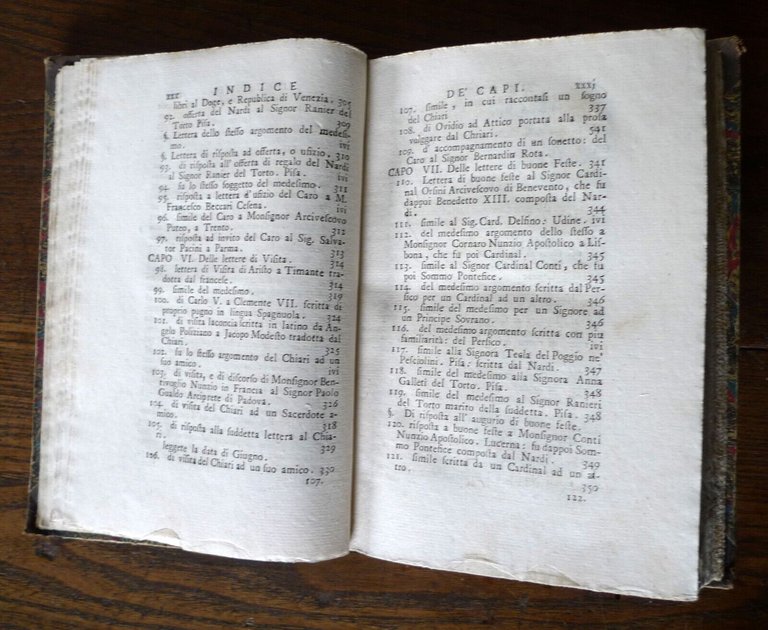 xxx INDICE
libri al Doge, e Republica di Venezia. 305
92. offerta del Nardi al Signor Ranier del
Torto Pisa. 309
§. Lettera dello stesso argomento del medesi-
mo. ivi
§. Lettera di risposta ad offerta, o ufizio. 310
93. di risposta all' offerta di regalo del Nardi
al Signor Ranier del Torto. Pisa. ivi
94. su lo stesso soggetto del medesimo. 311
95. risposta a lettera d'ufizio del Caro a M.
Francesco Beccari Cesena. ivi
96. simile del Caro a Monsignor Arcivescovo
Puteo, a Trento. 312
97. risposta ad invito del Caro al Sig. Salva-
tor Pacini a Parma. 313
CAPO VI. Delle lettere di Visita. 314
98. lettera di Visita di Aristo a Timante tra-
dotta dal francese. 314
99. simile del medesimo. 319
100. di Carlo V. a Clemente VII. scritta di
proprio pugno in lingua Spagnuola. 324
101. di visita laconica scritta in latino da An-
gelo Poliziano a Jacopo Modesto tradotta dal
Chiari. 325
102. su lo stesso argomento del Chiari ad un
suo amico. ivi
103. di visita, e di discorso di Monsignor Ben-
tivoglio Nunzio in Francia al Signor Paolo
Gualdo Arciprete di Padova. 326
104. di visita del Chiari ad un Sacerdote a-
mico. 318
105. di risposta alla suddetta lettera al Chia-
ri. 329
seggete la data di Giugno.
106. di visita del Chiari ad un suo amico. 330
107.
DE' CAPI. xxxj
107. simile, in cui raccontasi un sogno
del Chiari 337
108. di Ovidio ad Attico portata alla prosa
volgare dal Chriari. 541
109. d' accompagnamento di un sonetto: del
Caro al Signor Bernardin Rota.
CAPO VII. Delle lettere di buone Feste. 341
110. Lettera di buone feste al Signor Cardi-
nal Orsini Arcivescovo di Benevento, che fu
dappoi Benedetto XIII. composta del Nar-
di. 344
111. simile al Sig. Card. Delfino: Udine. ivi
112. del medesimo argomento dello stesso a
Monsignor Cornaro Nunzio Apostolico a Lis-
bona, che fu poi Cardinal. 345
113. simile al Signor Cardinal Conti, che fu
poi Sommo Pontefice 345
114. del medesimo argomento scritta dal Per-
sico per un Cardinal ad un altro. 346
115. simile del medesimo per un Signore ad
un Principe Sovrano. 346
116. del medesimo argomento scritta con più
familiarità: del Persico. ivi
117. simile alla Signora Tecla del Poggio ne'
Pesciolini. Pisa: scritta dal Nardi. 347
118. simile del medesimo alla Signora Anna
Galleti del Torto. Pisa. 348
119. simile del medesimo al Signor Ranieri
del Torto marito della suddetta. Pisa. 348
§. Di risposta all' augurio di buone feste.
120. risposta a buone feste a Monsignor Conti
Nunzio Apostolico. Lucerna: fu dappoi Som-
mo Pontefice composta dal Nardi. 349
121. simile scritta da un Cardinal ad un al-
tro. 350
122.